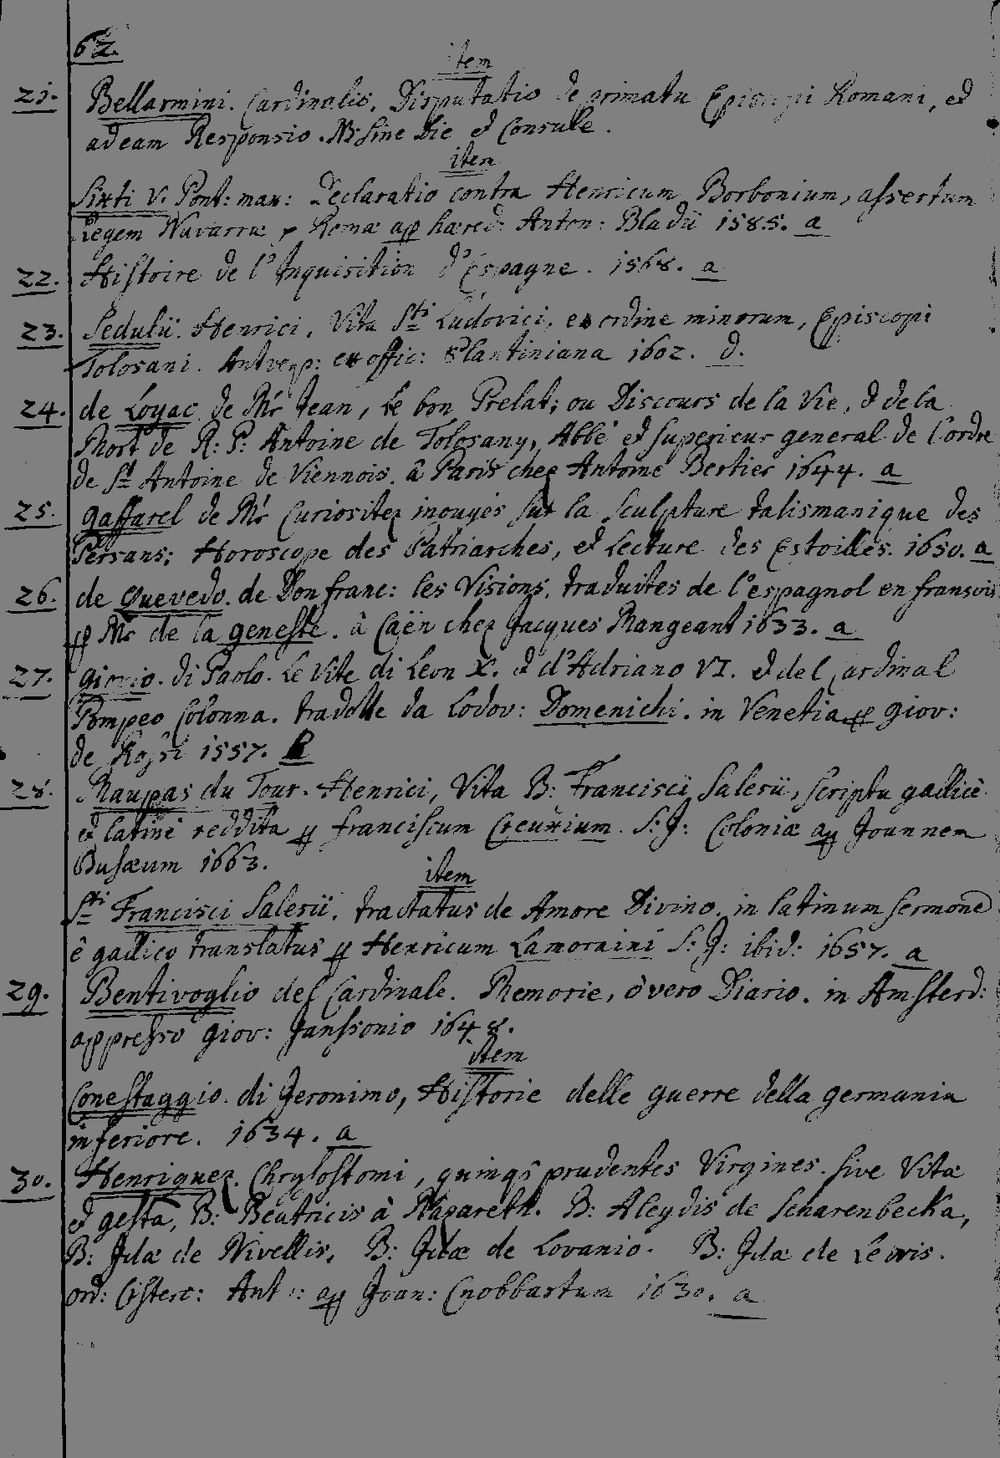 62.
item
21. Bellarmini. Cardinalis. Disputatio de primatu Episcopi Romani, et
ad eam Responsio. NB sine Die et Consule.
item
Sixti V. Pont: max: Declaratio contra Henricum Borbonium, assertum
Regem Navarræ Romæ ap hæred: Anton: Bladii 1585. a
22. Histoire de l'Inquisition d'Espagne. 1568. a
23. Sedulii. Henrici. Vita Sti Ludovici, ex ordine minorum, Episcopi
Tolosani. Antverp: ex offic: Plantiniana 1602. d.
24. de Loyac de Mr Jean, le bon Prelat; ou Discours de la Vie, & de la
Mort de R: P: Antoine de Tolosany, Abbé et superieur general de l'ordre
de St Antoine de Viennois. â Paris chez Antoine Bertier 1644. a
25. gaffarel de Mr Curiositez inouyes sur la sculpture talismanique des
Persans; Horoscope des Patriarches, et Lecture des Estoilles. 1650. a
26. de Quevedo. de Don franc: les Visions. traduites de l'espagnol en fransois
p Mr de la geneste. â Caën chez Jacques Mangeant 1633. a
27. giovio. di Paolo. Le Vite di Leon X. et d'Adriano VI. et del Cardinal
Pompeo Colonna. tradotte da Lodov: Domenichi. in Venetia p giov:
de Rossi 1557.
28. Maupas du Tour. Henrici, Vita B: Francisci Salesii, scripta gallicè
et latinè reddita p franciscum Creuxium. S: J: Coloniæ ap Joannem
Busæum 1663.
item
Sti Francisci Salesii. tractatus de Amore Divino. in latinum sermonē
è gallico translatus p Henricum Lamormini S: J: ibid: 1657. a
29. Bentivoglio del Cardinale. Memorie, òvero Diario. in Amsterd:
appresso giov: Janssonio 1648.
item
Conestaggio. di Jeronimo, Historie delle guerre della germania
inferiore. 1634. a
30. Henriquez. Chrysostomi, quinqȝ prudentes Virgines. sive Vitæ
et gesta, B: Beatricis à Nazareth. B: Aleydis de Scharenbecka,
B: Idæ de Nivellis, B: Idæ de Lovanio. B: Idæ de Lewis.
ord: Cisterc: Ant: ap Joan: Cnobbartum 1630. a